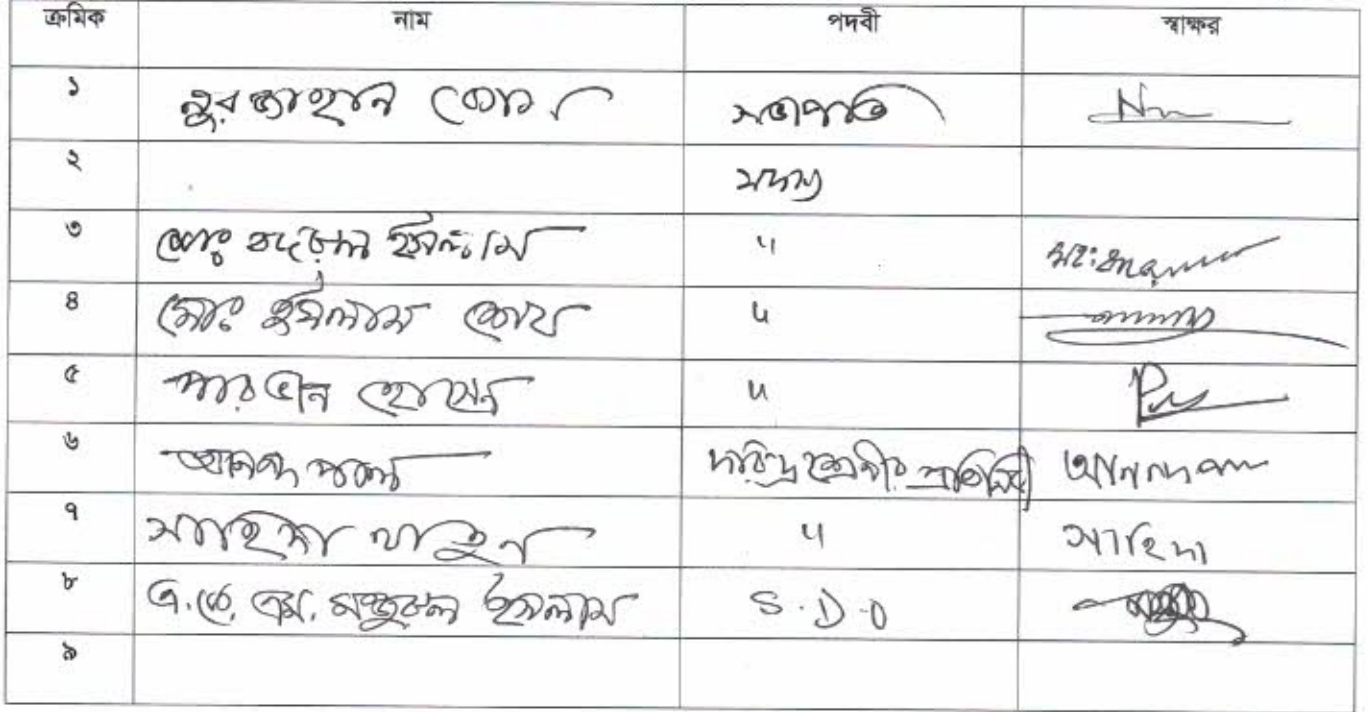 ক্রমিক নাম পদবী স্বাক্ষর
১ নুরজাহান সভাপতি
২ সদস্য
৩ মোঃ বদরুল ইসলাম "
৪ মোঃ ইসলাম শেখ "
৫ পারভীন হোসেন "
৬ আনন্দ পাল দরিদ্র শ্রেণীর প্রতিনিধী আনন্দ পাল
৭ সাহিদা খাতুন " সাহিদা
৮ এ.কে.এম. মঞ্জুরুল ইসলাম S.D.O
৯